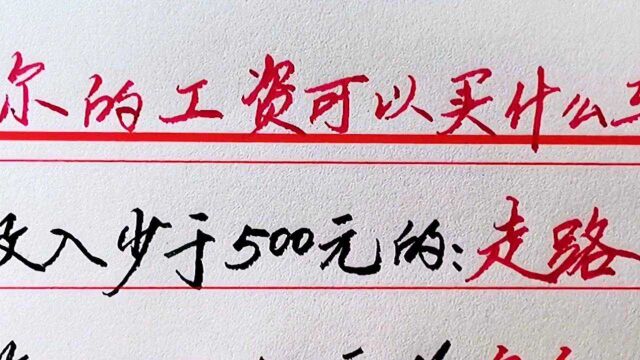 尔的工资可以买什么
入少于500元的:走路